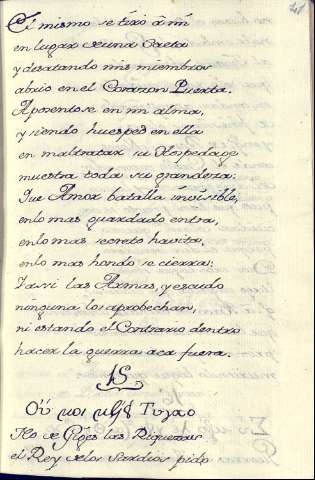 El mismo se tirò à mi
en lugar de una saeta
y desatando mis miembros
abrio en el Corazon Puerta.
Aposentose en mi alma,
y siendo huesped en ella
en maltratar su Hospedage
muestra toda su grandeza.
Que Amor batalla invisible,
en lo mas guardado entra,
en lo mas secreto havita,
en lo mas hondo se cierra:
Y assi las Armas, y escudo
ninguna los aprobechan,
ni estando el Contrario dentro
hacer la guerra aca fuera.
15
Οὐ μοι
No de Giges las Riquezas
el Rey de los Sardios pido